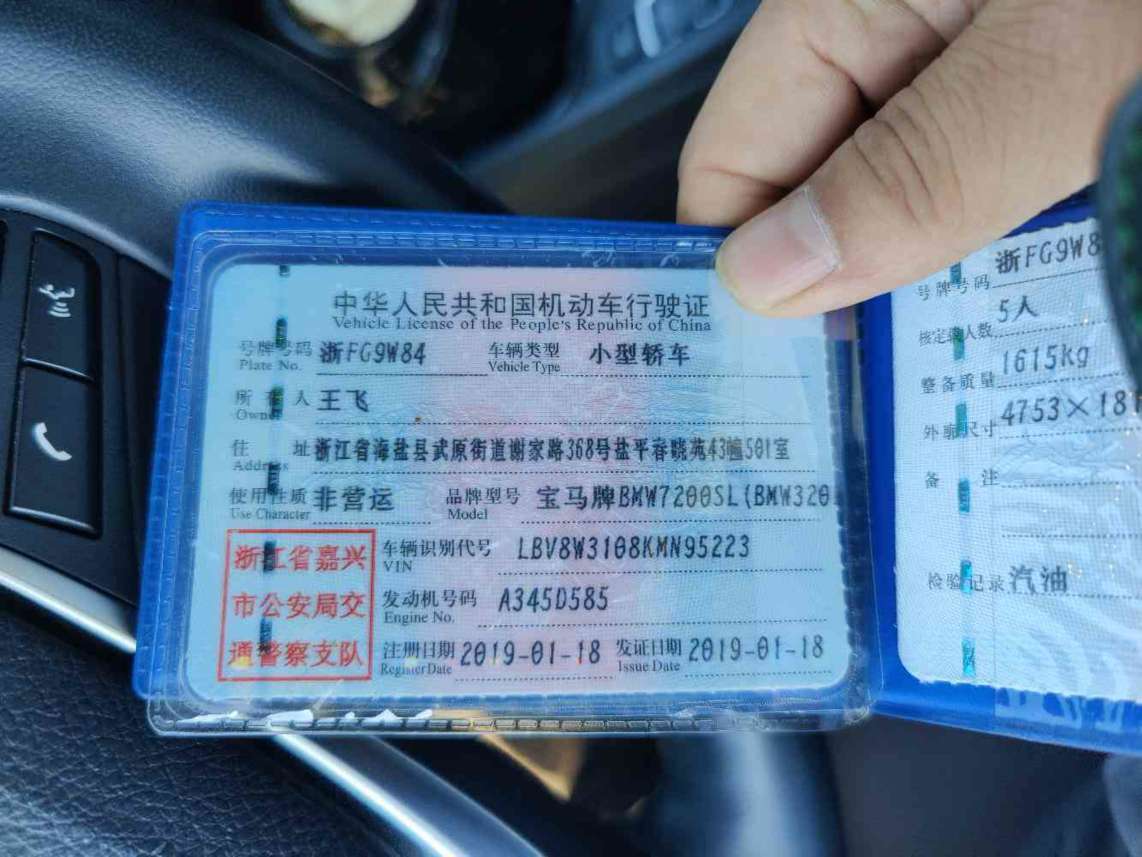 中华人民共和国机动车行驶证
Vehicle License of the People's Republic of China
号牌号码 浙FG9W84 车辆类型 小型轿车
Plate No. Vehicle Type
所有人 王飞
Owner
住址 浙江省海盐县武原街道谢家路368号盐平春晓苑43幢501室
Address
使用性质 非营运 品牌型号 宝马牌BMW7200SL(BMW320
Use Character Model
浙江省嘉兴
市公安局交
通警察支队
车辆识别代号 LBV8W3108KMN95223
VIN
发动机号码 A345D585
Engine No.
注册日期 2019-01-18 发证日期 2019-01-18
Register Date Issue Date
号牌号码 浙FG9W8
核定载人数 5人
整备质量 1615kg
外廓尺寸 4753×181
备注
检验记录 汽油